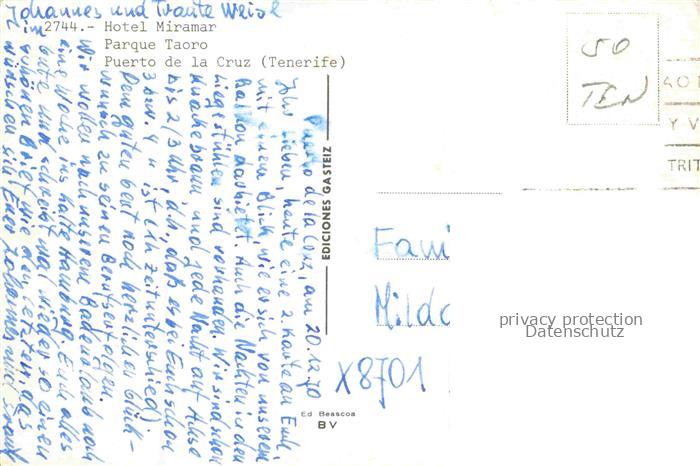 Johannes und Traute Weisl
2744.- Hotel Miramar
Parque Taoro
Puerto de la Cruz (Tenerife)
Puerto de la Cruz, am 20.12.70
Ihr Lieben, heute eine 2. Karte an Euch,
mit einem Blick, wie er sich von unserem
Balkon darbietet. Auch die Nächte in den
Liegestühlen sind vorhanden. Wir sind schon
knackebraun, und jede Nacht auf Achse
bis 2/3 Uhr, d.h., daß es bei Euch schon
3 bzw. 4 " ist (1h Zeitunterschied)
Dem guten Gert noch herzlichen Glück-
wunsch zu seinen Berufserfolgen.
Wir wollen nach unserem Badeurlaub noch
eine Woche ins kalte Hamburg. Euch alles
Gute und schreibt mal wieder so einen
schönen Brief wie den letzten, das
wünschen sich Euer Johannes und Traute
im
EDICIONES GASTEIZ
Ed Beascoa
BV
50
TEN
Y V
TRIT
Fami
Mildc
X8701
privacy protection
Datenschutz